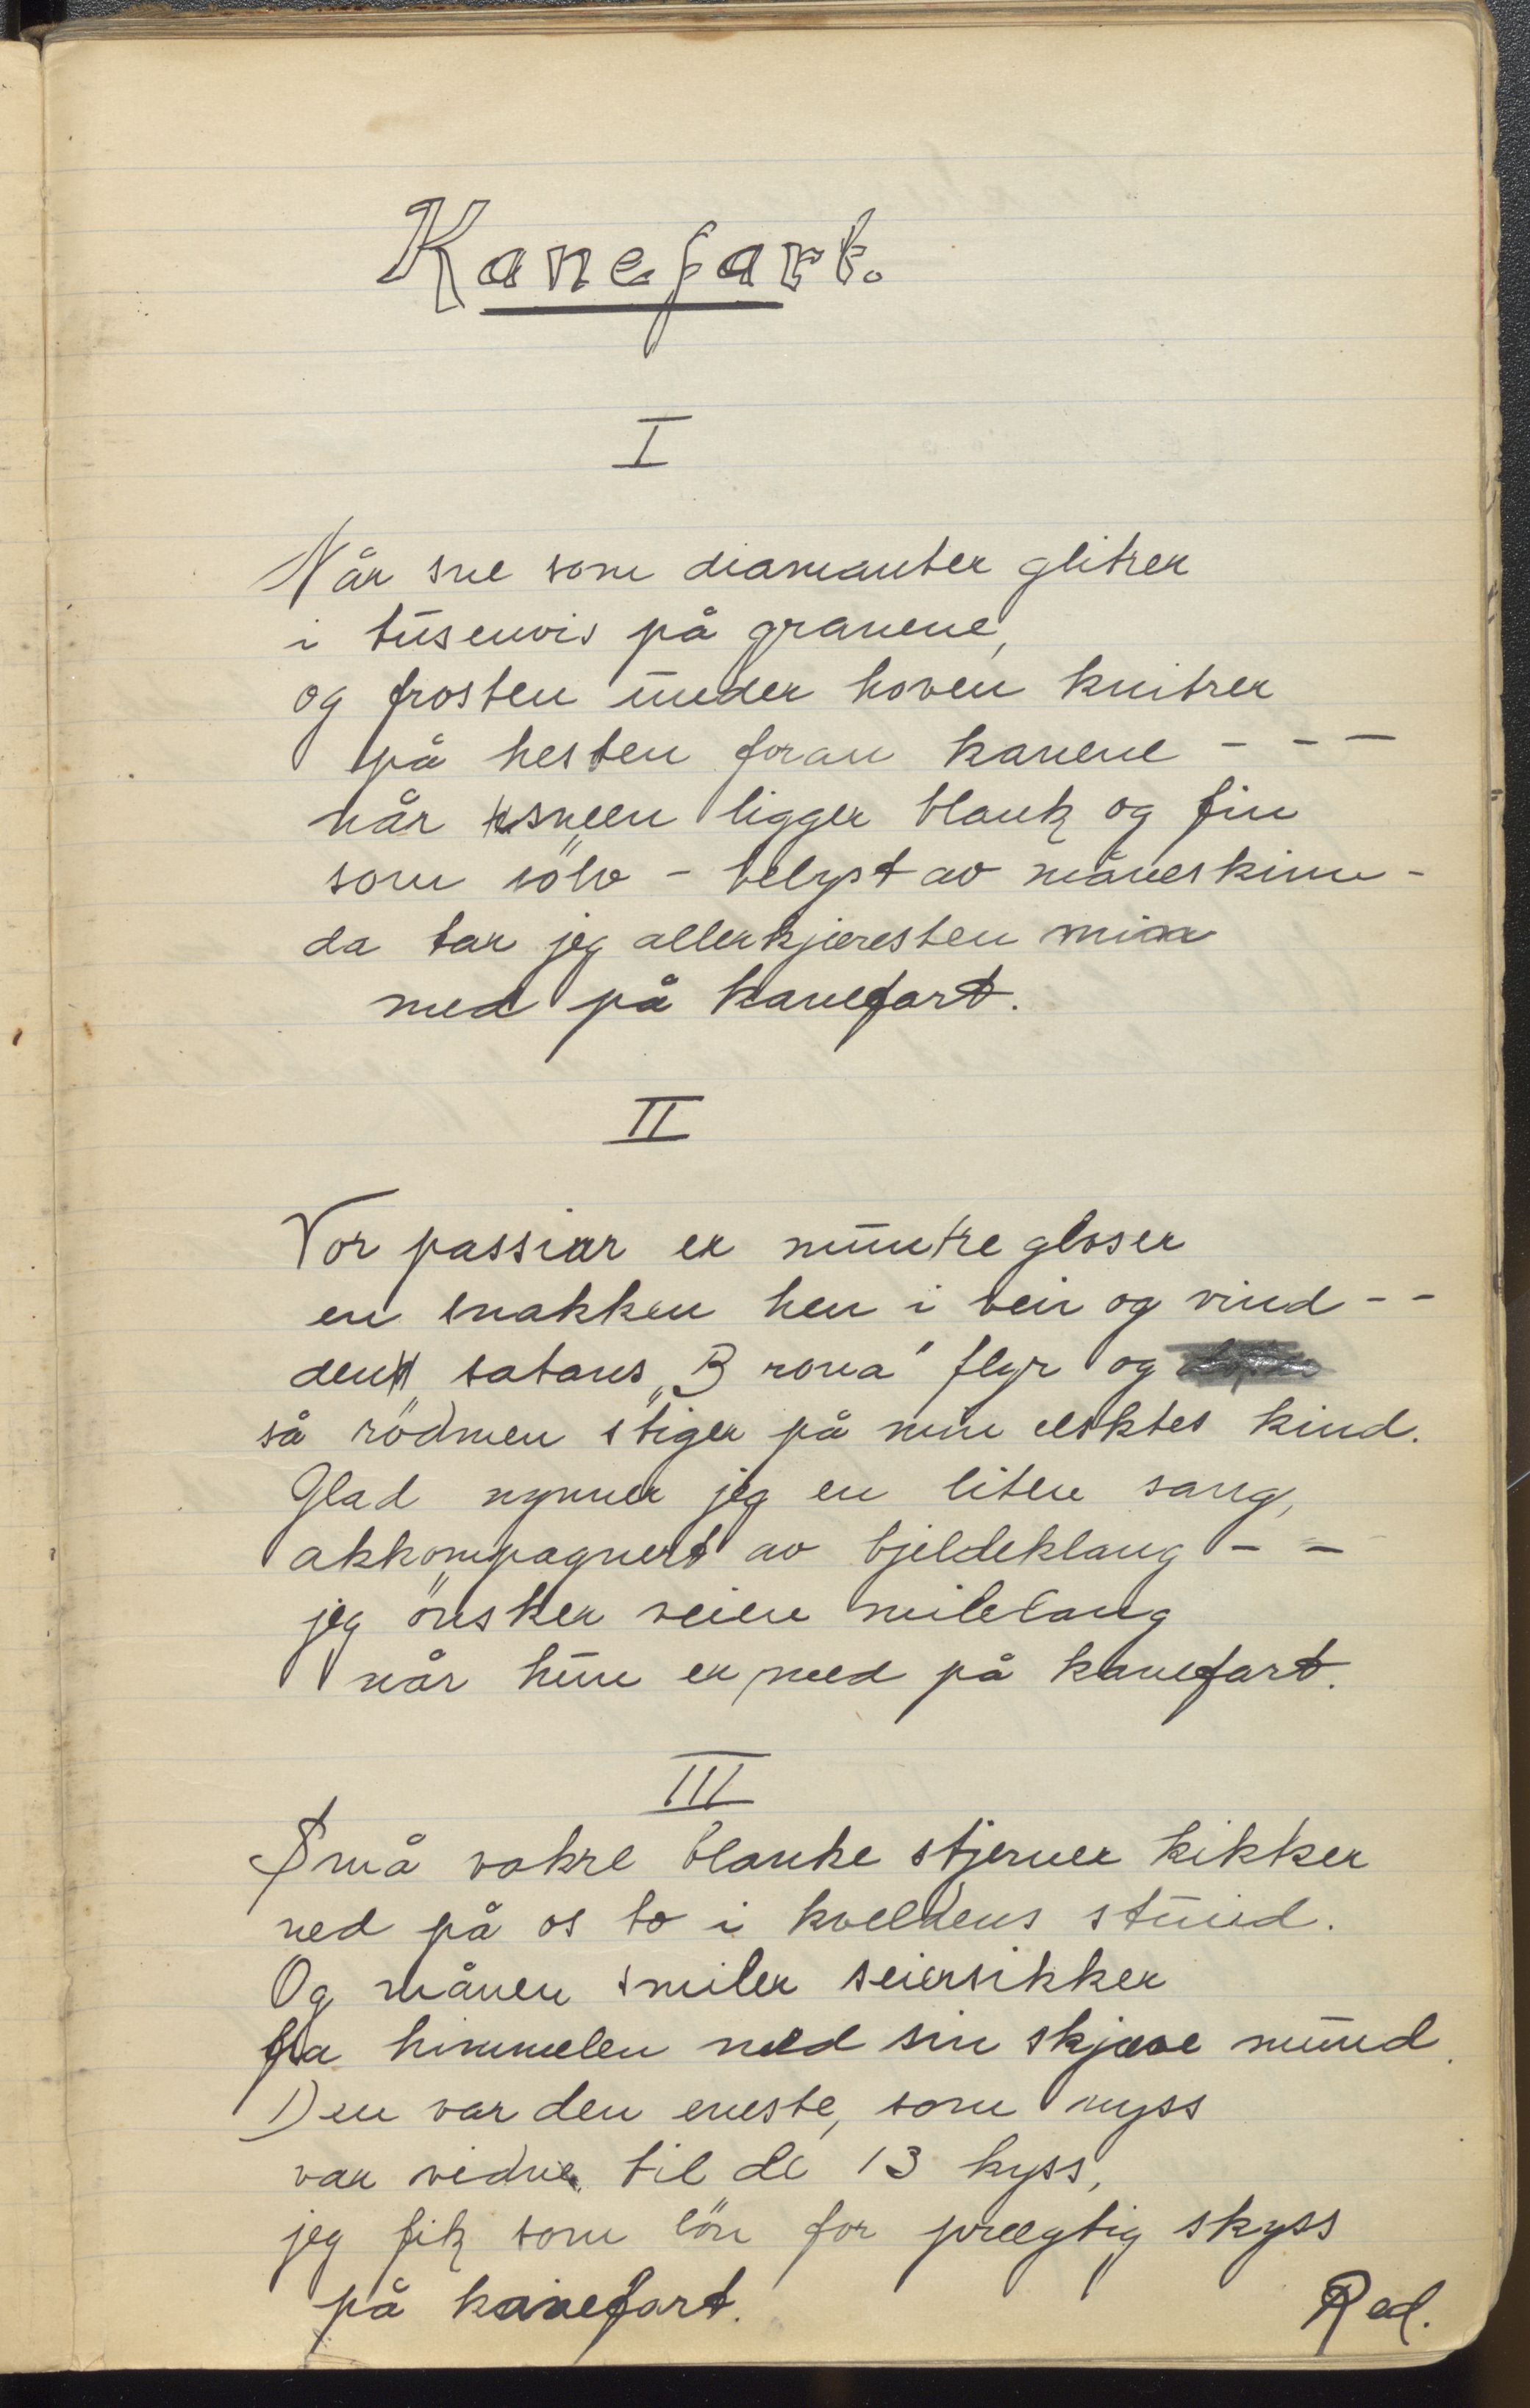 Kanefart.
I
Når sne som diamanter glitrer
i tusenvis på granene,
og frosten under hoven knitrer
på hesten foran kanene - - -
når sneen ligger blank og fin
som sölv - belyst av måneskinn -
da tar jeg allerkjæresten min
med på kanefart.
II
Vor passiar er muntre gloser
en snakken hen i veir og vind - -
den satans „Brona" flyr og
så rödmen stiger på min elsktes kind.
Glad nynner jeg en liten sang,
akkompagnert av bjeldeklang - -
jeg önsker veien milelang
når hun er med på kanefart.
III
Små vakre blanke stjerner kikker
ned på os to i kveldens stund.
Og månen smiler seiersikker
fra himmelen med sin skjæve mund.
Den var den eneste, som nyss
var vidne til de 13 kyss,
jeg fik som lön for prægtig skyss
på kanefart.
Red.